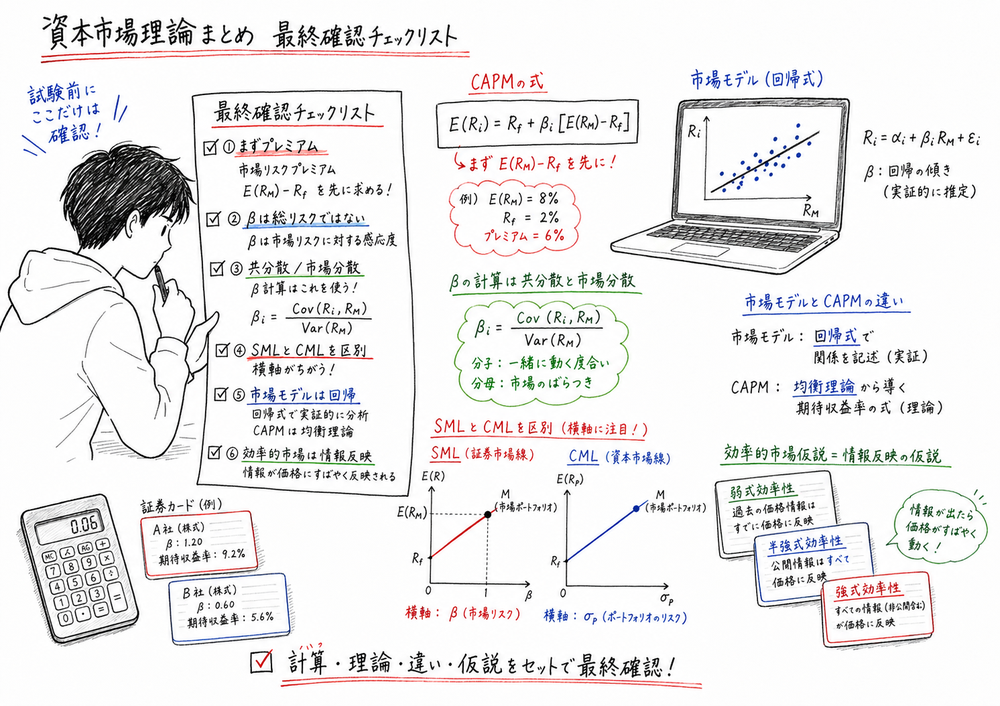 資本市場理論まとめ 最終確認チェックリスト
試験前に
ここだけは
確認！
最終確認チェックリスト
① まずプレミアム
市場リスクプレミアム
E(RM)-Rf を先に求める！
② βは総リスクではない
βは市場リスクに対する感応度
③ 共分散 / 市場分散
β計算はこれを使う！
βi = Cov(Ri, RM) / Var(RM)
④ SMLとCMLを区別
横軸がちがう！
⑤ 市場モデルは回帰
回帰式で実証的に分析
CAPMは均衡理論
⑥ 効率的市場は情報反映
情報が価格にすばやく反映される
CAPMの式
E(Ri) = Rf + βi [E(RM)-Rf]
まず E(RM)-Rf を先に！
例) E(RM) = 8%
Rf = 2%
プレミアム = 6%
βの計算は共分散と市場分散
βi = Cov (Ri, RM) / Var(RM)
分子：一緒に動く度合い
分母：市場のばらつき
市場モデル (回帰式)
Ri
RM
Ri = αi + βi RM + εi
β：回帰の傾き
(実証的に推定)
市場モデルとCAPMの違い
市場モデル： 回帰式で
関係を記述 (実証)
CAPM： 均衡理論から導く
期待収益率の式 (理論)
SMLとCMLを区別 (横軸に注目！)
SML (証券市場線)
E(R)
E(RM)
M
(市場ポートフォリオ)
Rf
0
1
β
横軸： β (市場リスク)
CML (資本市場線)
E(Rp)
M
(市場ポートフォリオ)
Rf
0
σp
横軸： σp (ポートフォリオのリスク)
効率的市場仮説 = 情報反映の仮説
弱式効率性
過去の価格情報は
すでに価格に反映
半強式効率性
公開情報はすべて
価格に反映
強式効率性
すべての情報 (非公開含む)
が価格に反映
情報が出たら
価格がすばやく
動く！
証券カード (例)
A社 (株式)
β：1.20
期待収益率：9.2%
B社 (株式)
β：0.60
期待収益率：5.6%
0.06
7 8 9
4 5 6
1 2 3
0
計算・理論・違い・仮説をセットで最終確認！